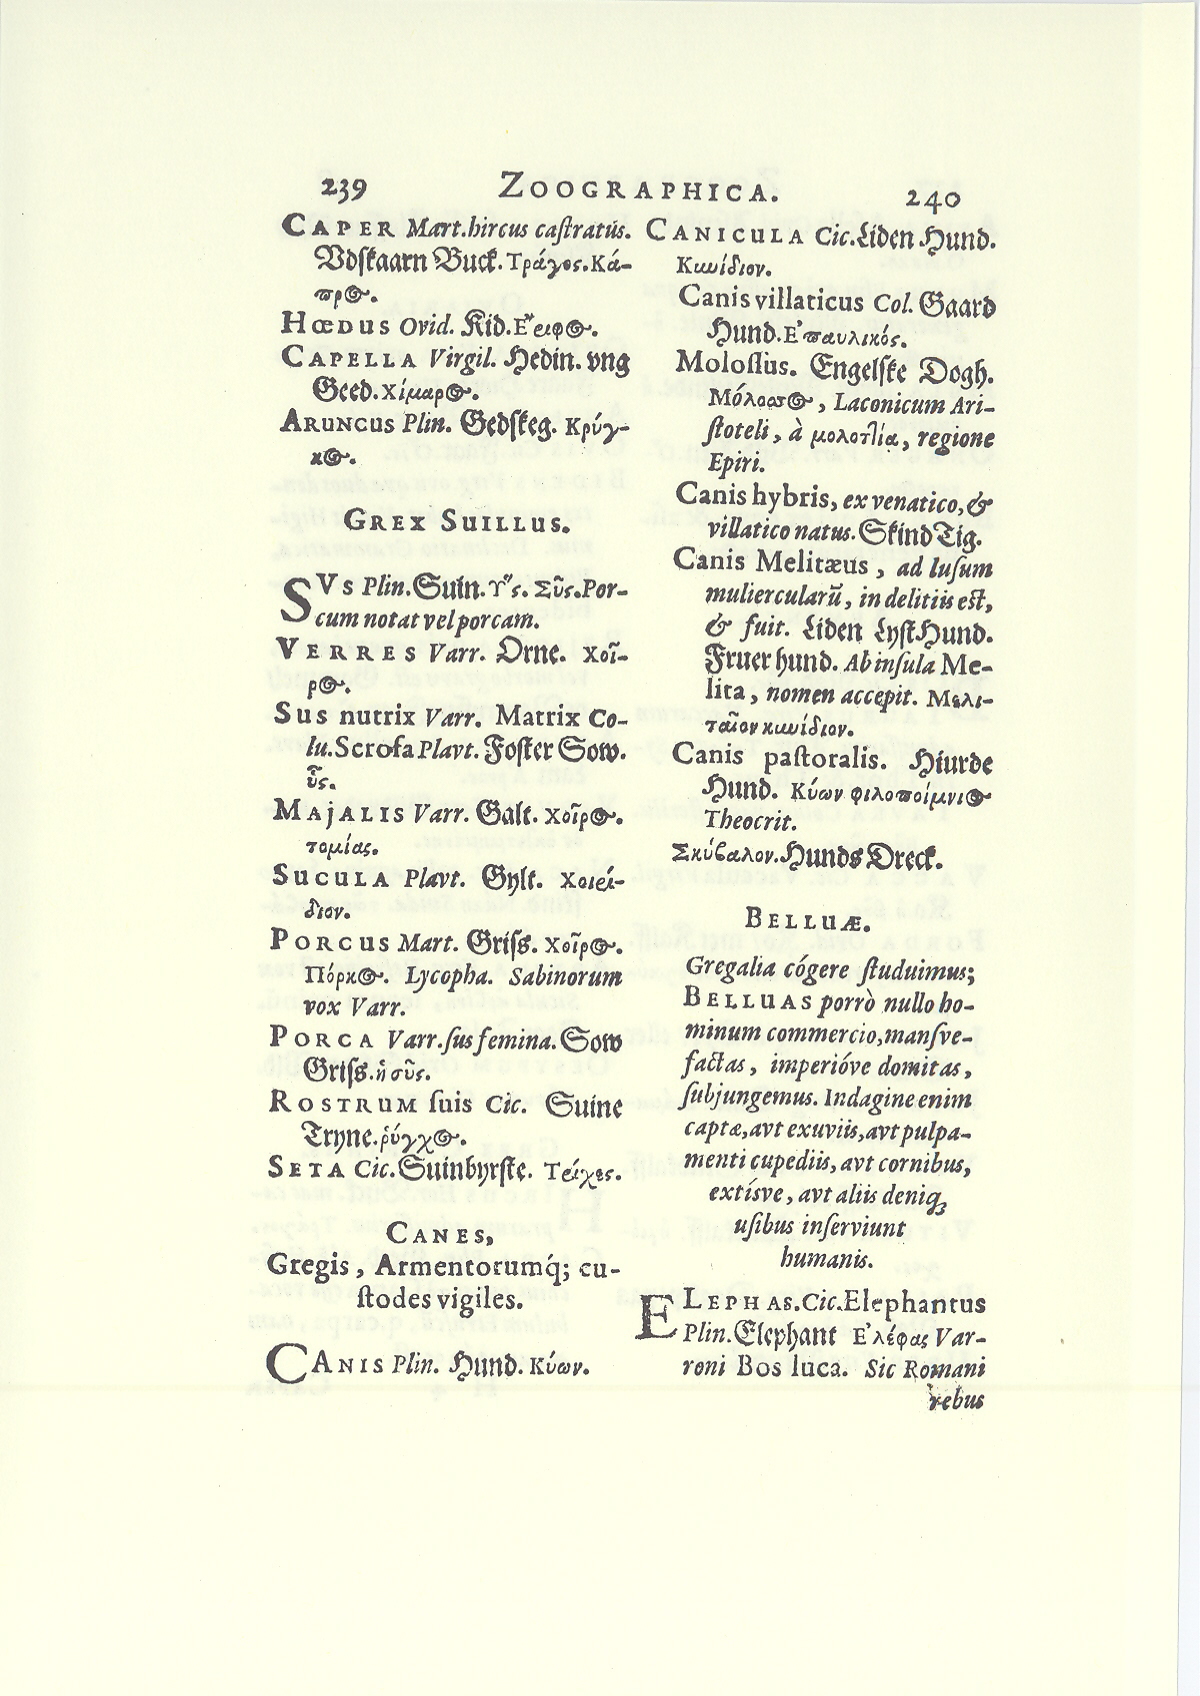 239 ZOOGRAPHICA. 240
CAPER Mart. hircus caſtratus.
Vdſkaarn Buck. Τράγος. Κά-
προς.
HOEDUS Ovid. Kid. Ε῎ειφος.
CAPELLA Virgil. Hedin. vng
Geed. Χίμαρος.
ARUNCUS Plin. Gedſkeg. Κρύγ-
κος.
GREX SUILLUS.
SVS Plin. Suin. Υ῞ς. Σῦς. Por-
cum notat vel porcam.
VERRES Varr. Orne. Χοῖ-
ρος.
SUS nutrix Varr. Matrix Co-
lu. Scrofa Plavt. Foſter Sow.
ὗς.
MAjALIS Varr. Galt. Χοῖρος.
τομίας.
SUCULA Plavt. Gylt. Χοιεί-
διον.
PORCUS Mart. Griſs. Χοῖρος.
Πόρκος. Lycopha. Sabinorum
vox Varr.
PORCA Varr. ſus femina. Sow
Griſs. ἡ σῦς.
ROSTRUM ſuis Cic. Suine
Tryne. ῥύγχος.
SETA Cic. Suinbyrſte. Τείχες.
CANES,
Gregis, Armentorumq́; cu-
ſtodes vigiles.
CANIS Plin. Hund. Κύων.
CANICULA Cic. Liden Hund.
Κυνίδιον.
Canis villaticus Col. Gaard
Hund. Ε᾿παυλικός.
Moloſſus. Engelſke Dogh.
Μόλοσσος, Laconicum Ari-
ſtoteli, à μολοττία, regione
Epiri.
Canis hybris, ex venatico, &
villatico natus. Skind Tig.
Canis Melitæus, ad luſum
muliercularũ, in delitiis eſt,
& fuit. Liden Lyſt Hund.
Fruer hund. Ab inſula Me-
lita, nomen accepit. Μελι-
ταῖον κυνίδιον.
Canis paſtoralis. Hiurde
Hund. Κύων φιλοποίμνιος
Theocrit.
Σκύβαλον. Hunds Dreck.
BELLUÆ.
Gregalia cógere ſtuduimus;
BELLUAS porrò nullo ho-
minum commercio, manſve-
factas, imperióve domitas,
ſubjungemus. Indagine enim
captæ, avt exuviis, avt pulpa-
menti cupediis, avt cornibus,
extísve, avt aliis deniq;
uſibus inſerviunt
humanis.
ELEPHAS. Cic. Elephantus
Plin. Elephant Ε᾿λέφας Var-
roni Bos luca. Sic Romani
rebus